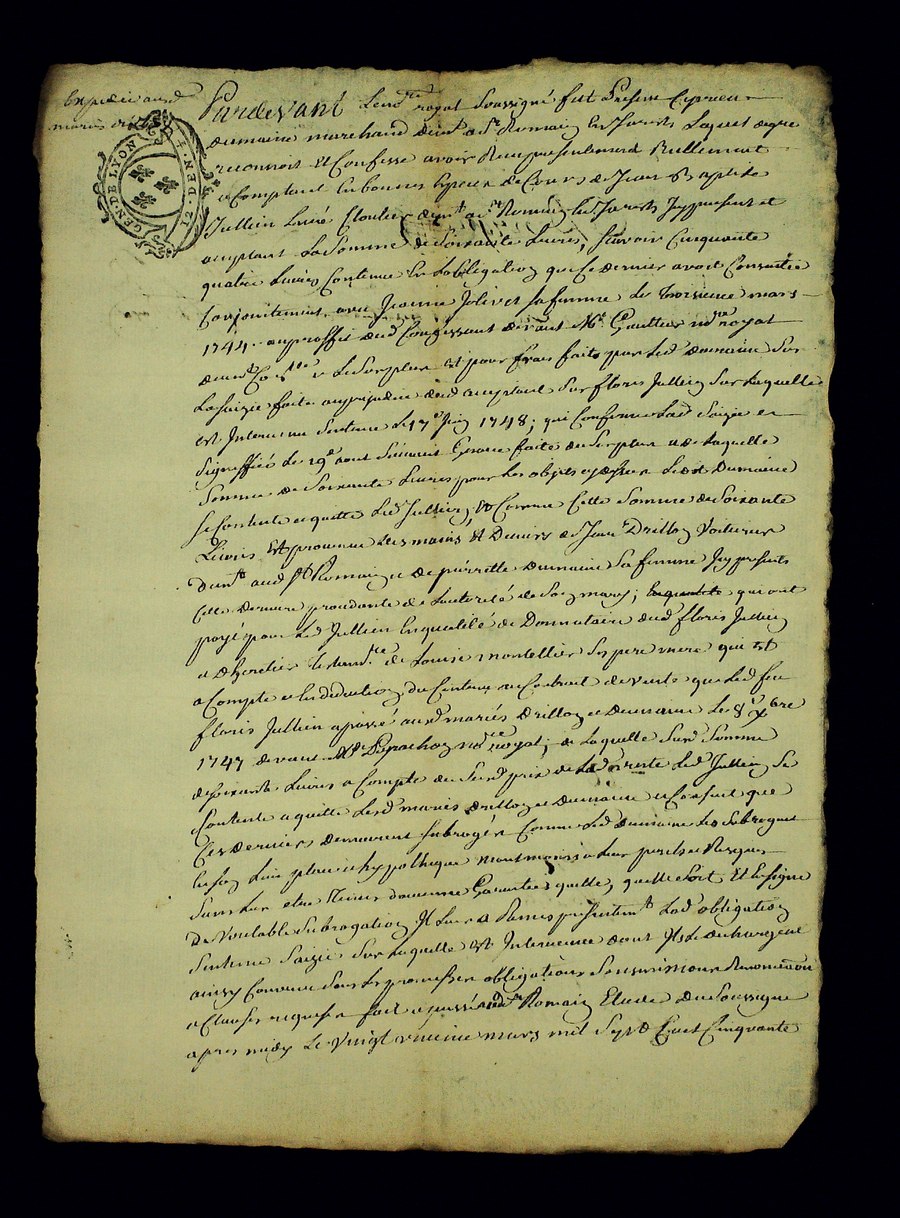 Expedié aud
mariés drillon
GEN. DE LYON
12. DEN. 4
Pardevant Le nore royal Soussigné fut Present Ciprien
dumaine marchand demt a St Romain En Jarests Lequel de gré
reconnoit Et Confesse avoir Reçu presentement Reellement
a Comptant En bonnes Especes de Cours de Jean Baptiste
Jullien Cloutier demt a St Romain En Jarests Icy present et
acceptant La Somme de Soixante Livres, Scavoir Cinquante
quatre Livres Contenue En Lobligation que Ce dernier avoit Consentie
Conjointement avec Jeanne Jolivet sa femme Le troisieme mars
1744. au proffit dud Confessant devant Me Gaultier nore royal
Le Surplus Est pour frais faits par led dumaine Sur
La Saizie faite au prejudice dud acceptant Sur floris Jullien Sur Laquelle
Est Intervenu Sentence Le 17e Juin 1748, qui Confirme Lad Saizie et
Signiffiée Le 29e aout Suivant Grace faite du Surplus de Laquelle
Somme de Soixante Livres pour Les objets Led Dumaine
Se Contente et quitte Led Jullien, Et Comme Cette Somme de Soixante
Livres Est provenue des mains Et Deniers de Jean Drillon Voiturier
demt aud St Romain et de pierrette dumaine Sa femme Icy presents
Cette derniere procedante de Lautorité de Son mary; qui ont
payé pour Led Jullien En qualité de Donnataire dud floris Jullien
a dheritier de Louise montellier Ses pere mere qui Est
a Compte En déduction du Contenu au Contrait de Vente que Led feu
floris Jullien a passé auxd mariés Drillon et Dumaine Le 8e xbre
1747 devant Me nore royal; de Laquelle Susd Somme
de Soixante Livres a Compte du Susd prix de Led Jullien Se
Contente et quitte Lesd mariés drillon et Dumaine et Consent que
Ces derniers demeurent Subrogés Comme Led Dumaine Les Subrogent
En Son Lieu place et hypotheque neantmoins a Leur perils et Risques
Sans Leur Etre Tenus daucune Garantie quelle, quelle Soit Et En Signe
De Veritable Subrogation Il Leur a Remis presentemt Lad obligation
Sentence Saizie Sur Laquelle Est Intervenue dont Ils Le dechargent
ainsy Convenu Sous Les promesses obligations Soumissions Renonciaon
a Clauses requises fait et passé aud St Romain Etude du Soussigné
apres midy Le Vingt mars mil Sept Cent Cinquante